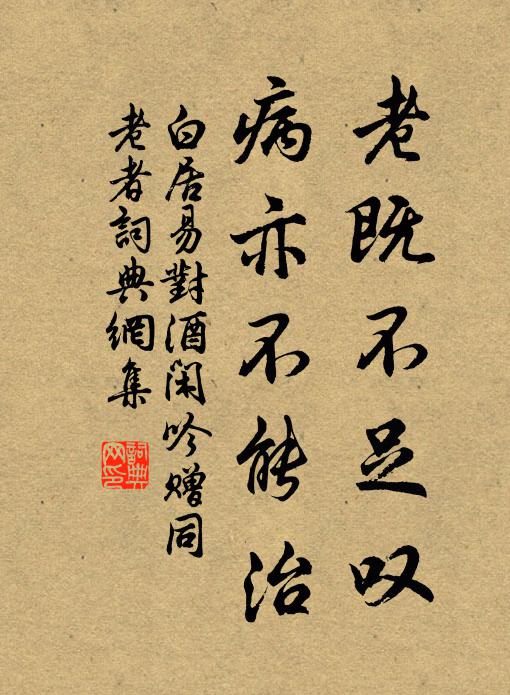 老既不足叹
病亦不能治
白居易對酒闲吟赠同
老者詞典網集
詞典网印